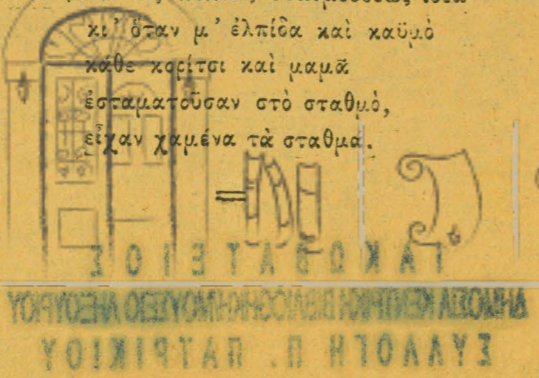 κι’ ὅταν μ’ ἐλπίδα καὶ καϋμὸ
κάθε κορίτσι καὶ μαμᾶ
ἐσταματοῦσαν στὸ σταθμὸ,
εἶχαν χαμένα τὰ σταθμα.
ΙΑΚΩΒΑΤΕΙΟΣ
ΔΗΜΟΣΙΑ ΚΕΝΤΡΙΚΗ ΒΙΒΛΙΟΘΗΚΗ ΜΟΥΣΕΙΟ ΛΗΞΟΥΡΙΟΥ
ΣΥΛΛΟΓΗ Π. ΠΑΤΡΙΚΙΟΥ